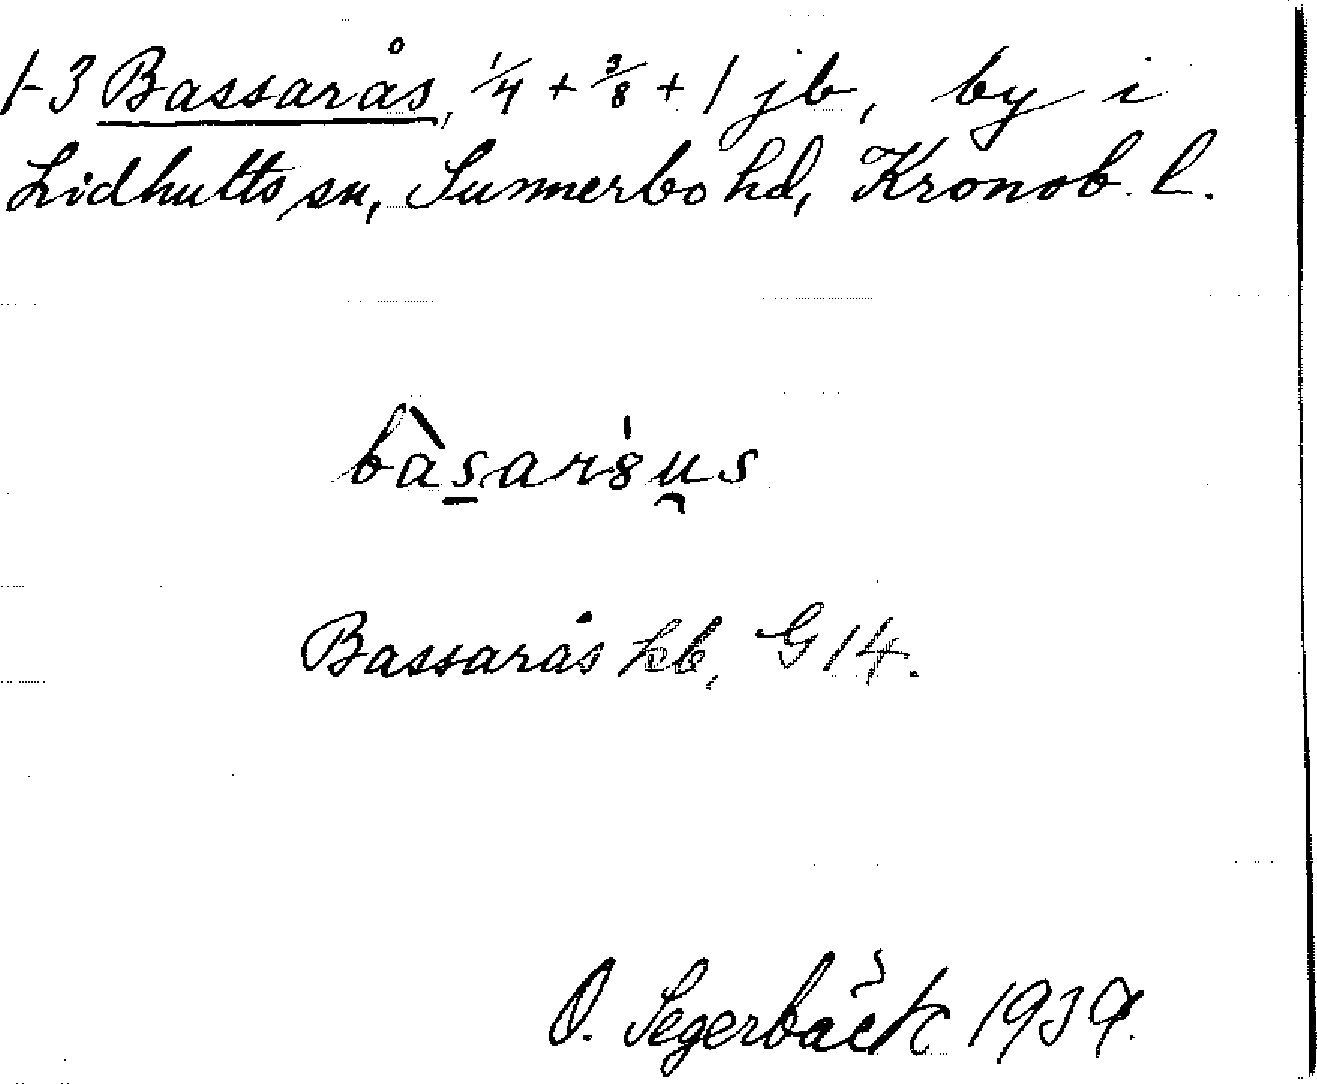 1-3 Bassarås, 1/4 + 3/8 + 1 jb, by i
Lidhults sn, Sunnerbo hd, Kronob. l.
Bassarås kb, G 14.
O. Segerbäck 1939.